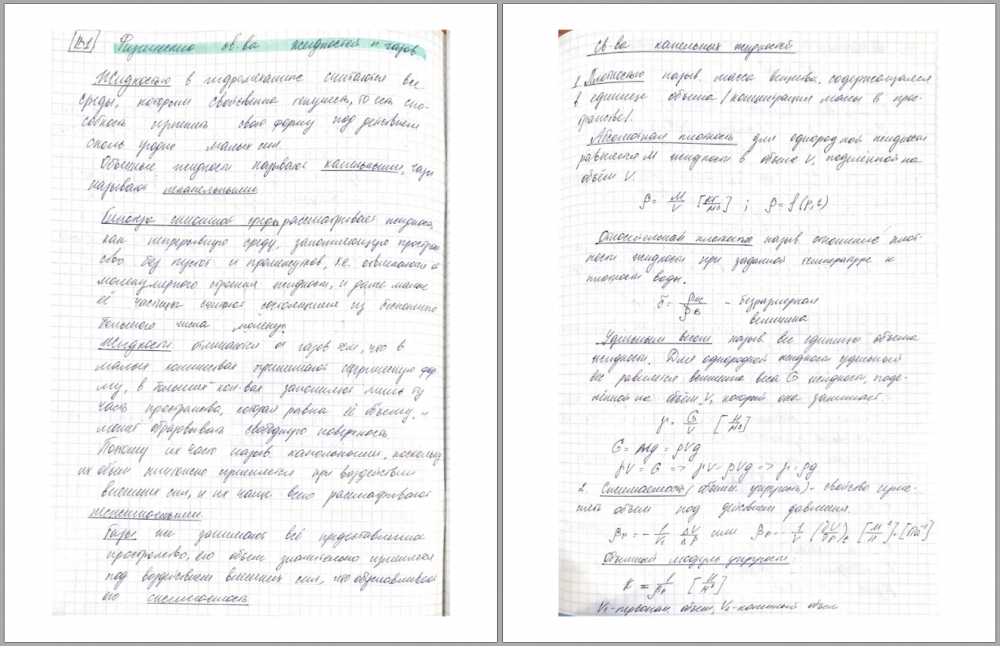 №1 Физические св-ва жидкостей и газов.
Жидкостью в гидромеханике считаются все
среды, которым свойственна текучесть, то есть спо-
собность изменять свою форму под действием
сколь угодно малых сил.
Обычные жидкости называют капельными, газы
называют некапельными
сплошная среда рассматривает жидкость
как непрерывную среду, заполняющую простран-
ство без пустот и промежутков, т.е. отвлекаются от
молекулярного строения жидкости, и даже малые
её частицы считают состоящими из бесконечно
большого числа молекул.
Жидкости отличаются от газов тем, что в
малых количествах принимают сферическую фор-
му, в больших кол-вах заполняют лишь ту
часть пространства, которая равна её объёму, и
может образовывать свободную поверхность
Поэтому их часто назыв. капельными, поскольку
их объём ничтожно изменяется при воздействии
внешних сил, и их чаще всего рассматривают
несжимаемыми.
Газы же занимают всё предоставленное
пространство, его объём значительно изменяется
под воздействием внешних сил, что обуславливает
его сжимаемость
Св-ва капельных жидкостей
1. Плотностью назыв. масса вещества, содержащаяся
в единице объёма /концентрация массы в прос-
транстве/.
Абсолютная плотность для однородной жидкости
равняется M жидкости в объёме V, поделённой на
объём V.
ρ = M/V [кг/м³] ; ρ = f(p,t)
Относительная плотность назыв. отношение плот-
ности жидкости при заданной температуре к
плотности воды.
δ = ρж/ρв – безразмерная
величина
Удельным весом назыв. вес единицы объёма
жидкости. Для однородной жидкости удельный
вес равняется величине веса G жидкости, поде-
лённой на объём V, который она занимает.
γ = G/V [Н/м³]
G = mg = ρVg
γV = G => γV = ρVg => γ = ρg
2. Сжимаемость (объёмн. упругость) - свойство изме-
нять объём под действием давления.
βp = - 1/V₁ ΔV/Δp или βp = - 1/V (∂V/∂p)t [м²/Н]=[Па⁻¹]
Объёмный модуль упругости:
K = 1/βp [Н/м²]
V₁-первонач. объём, V₂-конечный объём